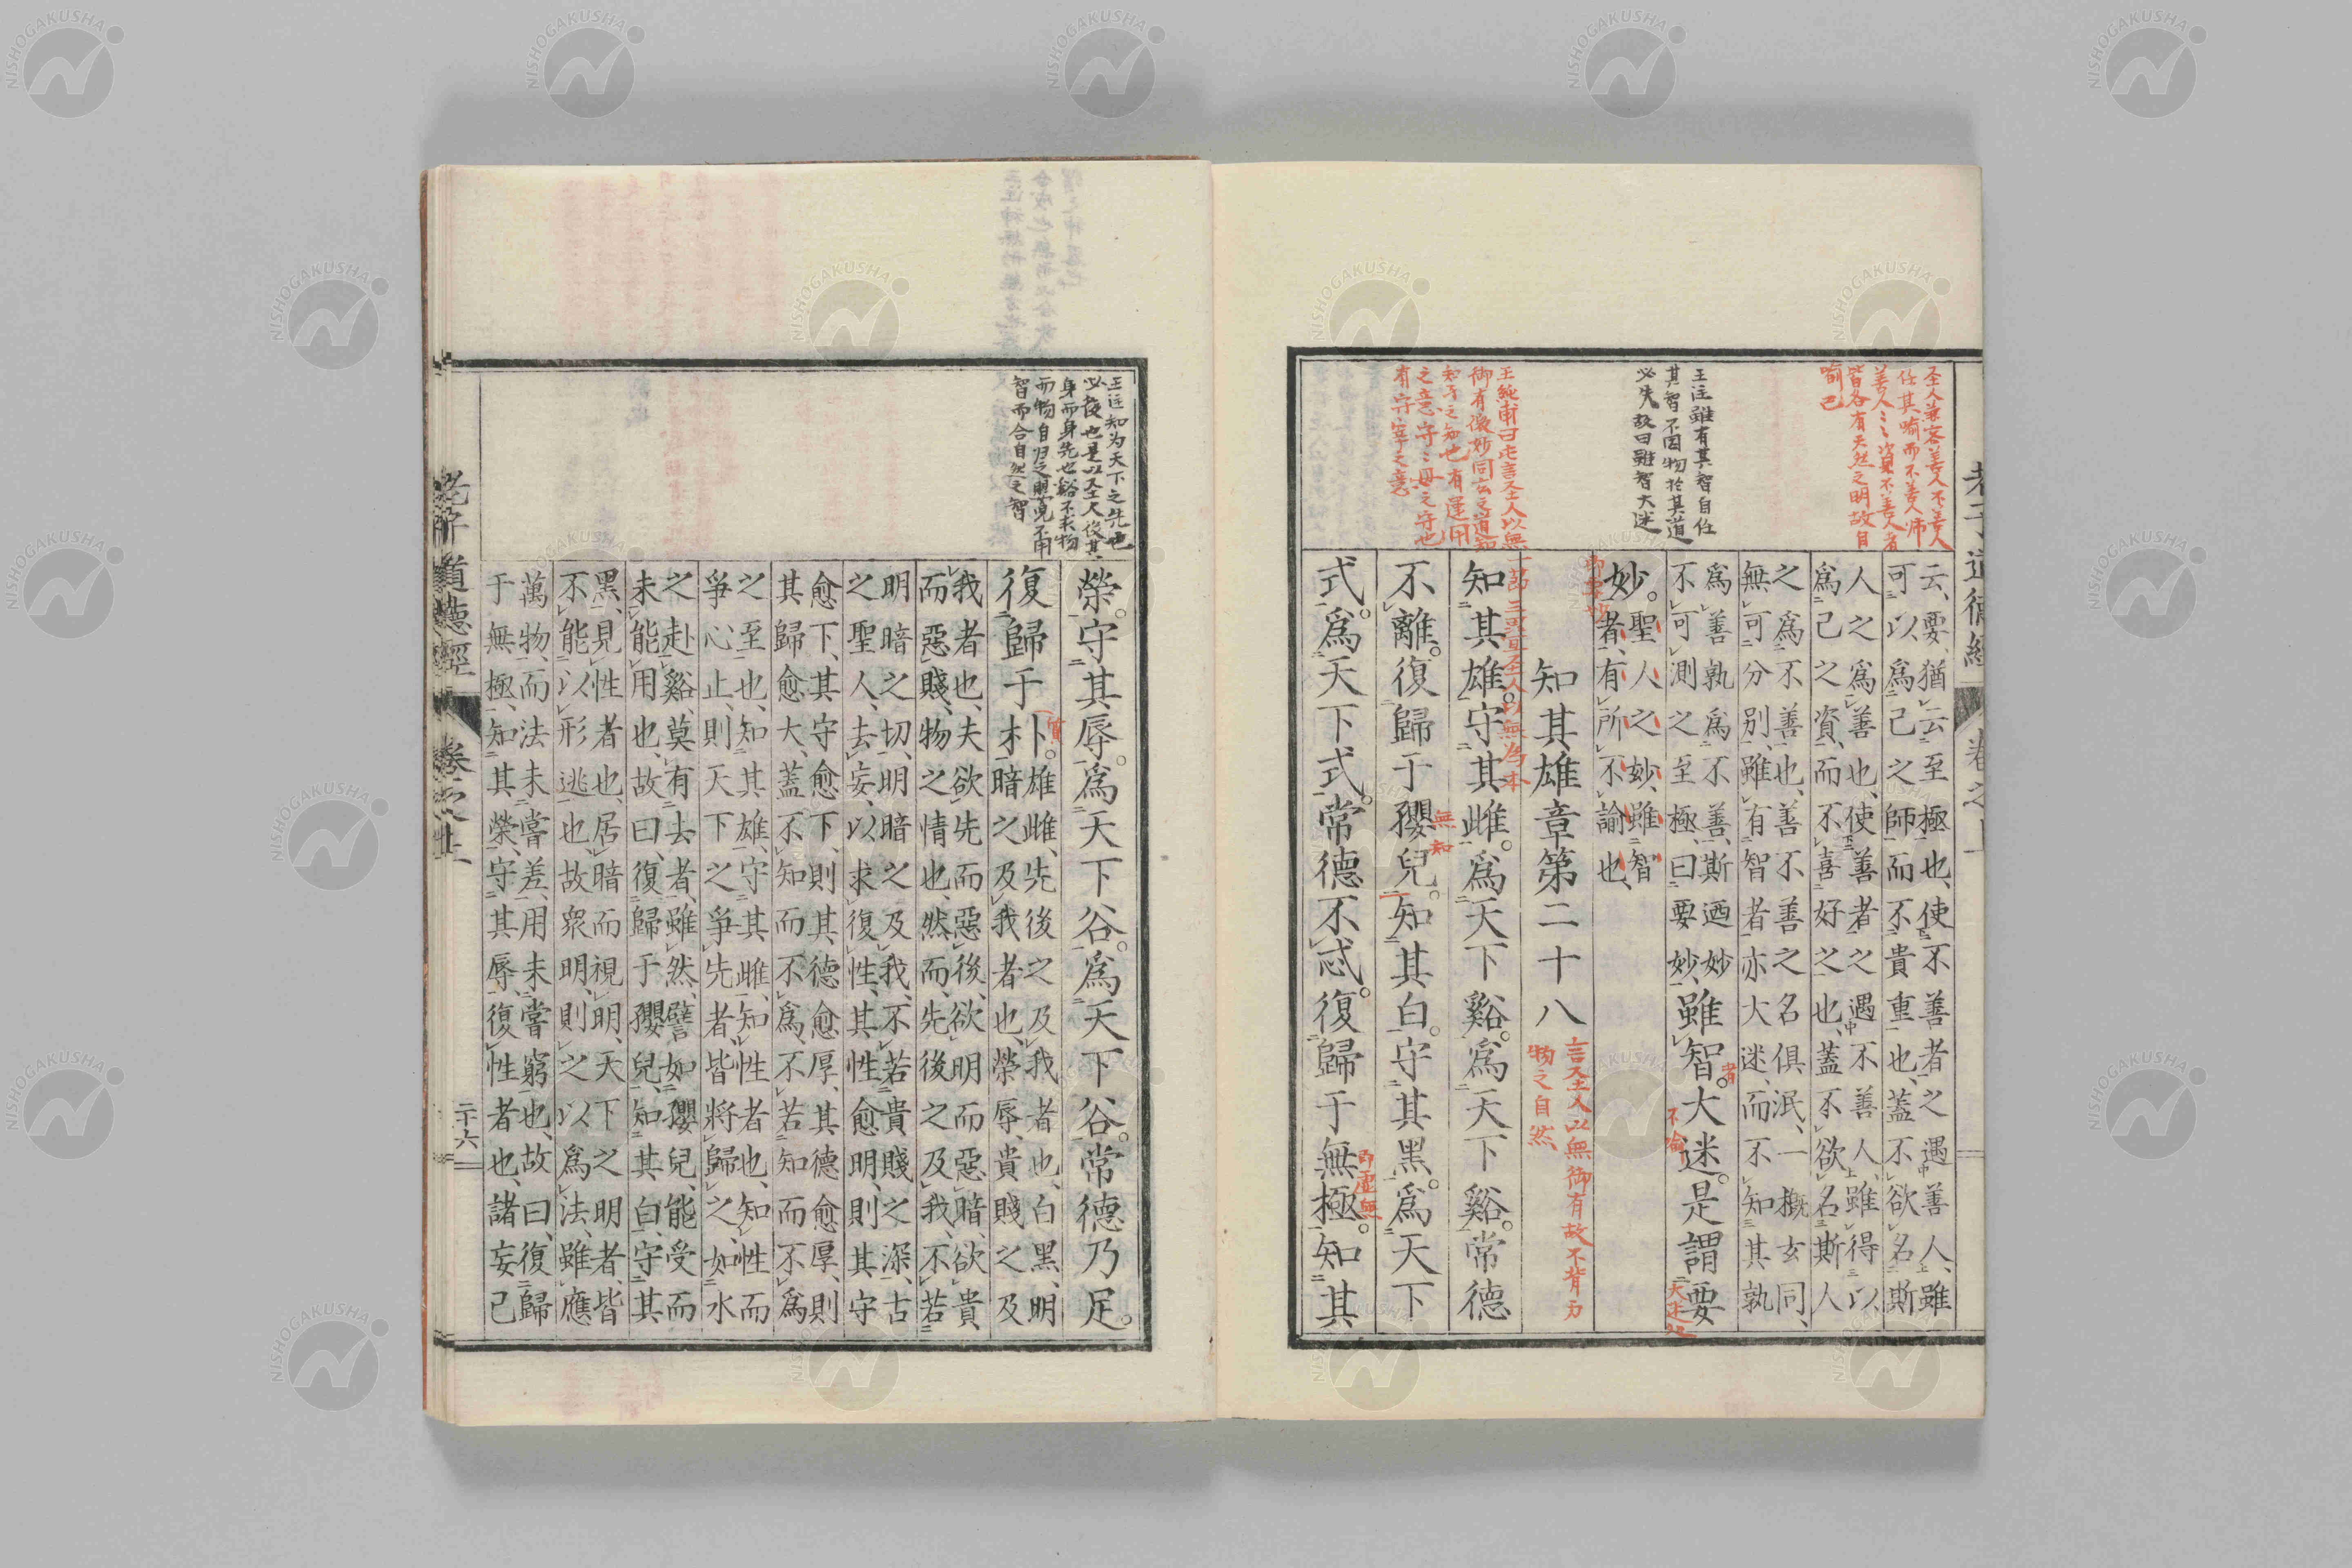 老子道德經
卷之上
聖人兼容善人不善人
任其喻而不善人師
善人善人資不善人者
皆各有天然之明故自
喻已
王注雖有其智自任
其智不因物於其道
必失故曰雖智大迷
王純甫曰此言聖人以無
御有微妙同玄之道知
知子之知也有運用
之意守守母之守也
有守宰之意
云要猶云至極也使不善者之遇善人雖
可以爲己之師而不貴重也蓋不欲名斯
人之爲善也使善者之遇不善人雖得以
爲己之資而不喜好之也蓋不欲名斯人
之爲不善也善不善之名俱泯一概玄同
無可分別雖有智者亦大迷而不知其孰
爲善孰爲不善斯迺妙
不可測之至極曰要妙
雖智大迷是謂要
者
不喻
妙
聖人之妙雖智
者有所不諭也
知其雄章第二十八
言聖人以無御有故不背于
物之自然
知其雄守其雌爲天下谿爲天下谿常德
節三章聖人以無爲本
不離復歸于孾兒知其白守其黑爲天下
無知
式爲天下式常德不忒復歸于無極知其
即虛無
王注知为天下之先也
必後也是以聖人後其
身而身先也谿不求物
而物自归之嬰兒不用
智而合自然之智
榮守其辱爲天下谷爲天下谷常德乃足
復歸于朴
質
雄雌先後之及我者也白黑明
暗之及我者也榮辱貴賤之及
我者也夫欲先而惡後欲明而惡暗欲貴
而惡賤物之情也然而先後之及我不若
明暗之切明暗之及我不若貴賤之深古
之聖人去妄以求復性其性愈明則其守
愈下其守愈下則其德愈厚其德愈厚則
其歸愈大蓋不知而不爲不若知而不爲
之至也知其雄守其雌知性者也知性而
爭心止則天下之爭先者皆將歸之如水
之赴谿莫有去者雖然譬如孾兒能受而
未能用也故曰復歸于孾兒知其白守其
黑見性者也居暗而視明天下之明者皆
不能以形逃也故衆明則之以爲法雖應
萬物而法未嘗差用未嘗窮也故曰復歸
于無極知其榮守其辱復性者也諸妄已
老子道德經
卷之上
二十六